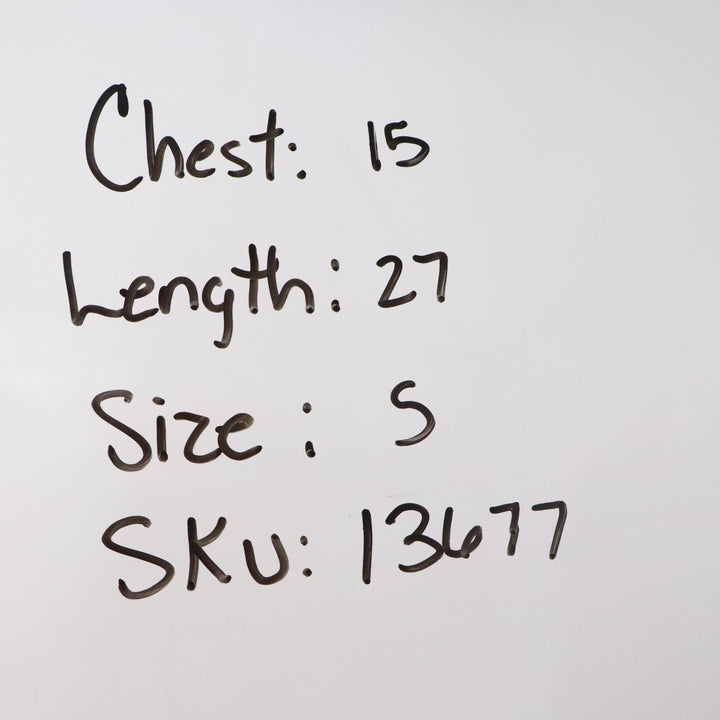 Chest: 15
Length: 27
Size: S
SKU: 13677